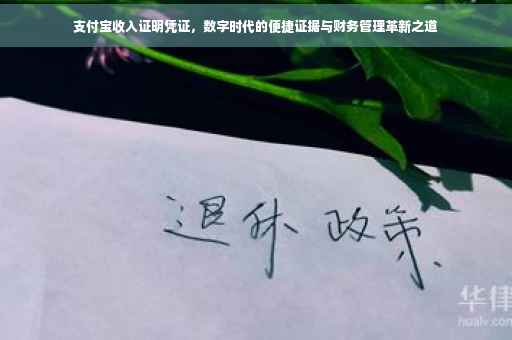 支付宝收入证明凭证，数字时代的便捷证据与财务管理革新之道
退休 政策
华律
hualv.com